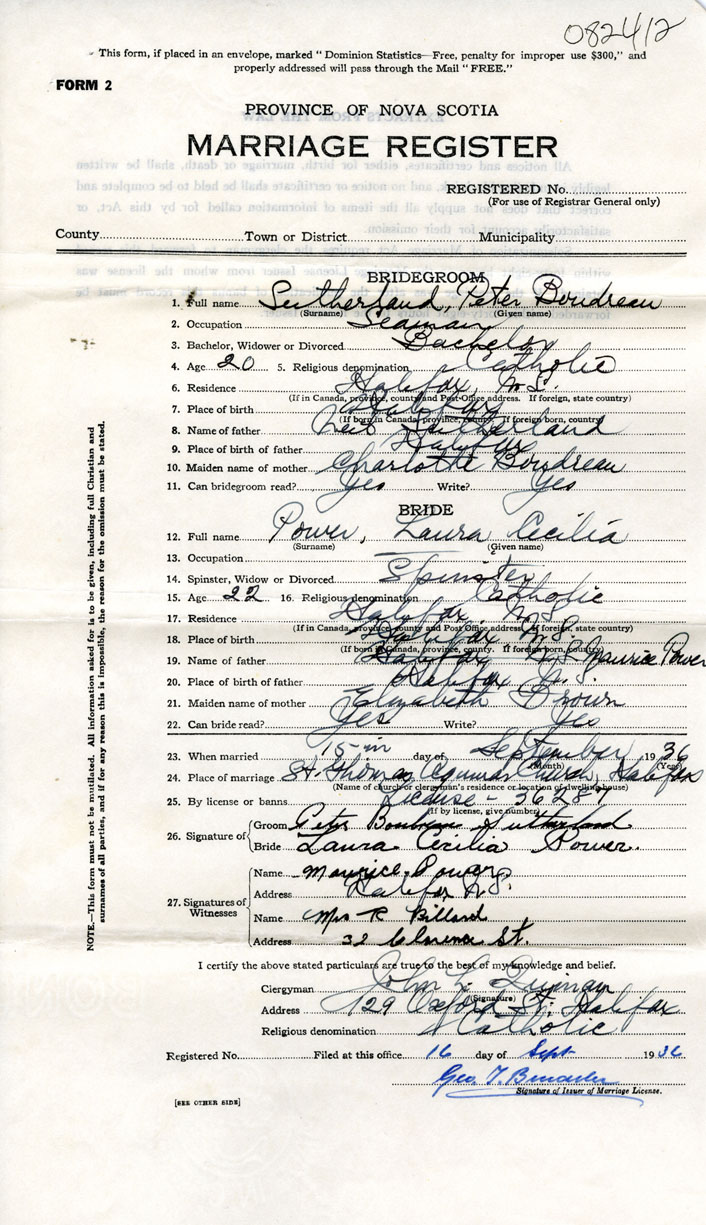 082412
This form, if placed in an envelope, marked "Dominion Statistics—Free, penalty for improper use $300," and
properly addressed will pass through the Mail "FREE."
FORM 2
PROVINCE OF NOVA SCOTIA
MARRIAGE REGISTER
REGISTERED No.
(For use of Registrar General only)
County Town or District Municipality
BRIDEGROOM
1. Full name Sutherland, Peter Boudreau
(Surname) (Given name)
2. Occupation Seaman
3. Bachelor, Widower or Divorced Bachelor
4. Age 20 5. Religious denomination Catholic
6. Residence Halifax, N.S.
(If in Canada, province, county and Post Office address. If foreign, state country)
7. Place of birth Halifax
(If born in Canada, province, county. If foreign born, country)
8. Name of father Sutherland
9. Place of birth of father Halifax
10. Maiden name of mother Charlotte Boudreau
11. Can bridegroom read? Yes Write? Yes
BRIDE
12. Full name Power, Laura Cecilia
(Surname) (Given name)
13. Occupation
14. Spinster, Widow or Divorced Spinster
15. Age 22 16. Religious denomination Catholic
17. Residence Halifax, N.S.
(If in Canada, province, county and Post Office address. If foreign, state country)
18. Place of birth Halifax N.S.
(If born in Canada, province, county. If foreign born, country)
19. Name of father Halifax N.S. Maurice Power
20. Place of birth of father Halifax N.S.
21. Maiden name of mother Elizabeth Brown
22. Can bride read? Yes Write? Yes
23. When married 15 day of September 1936
(Month) (Year)
24. Place of marriage St. Thomas Church, Halifax
(Name of church or clergyman's residence or location of dwelling house)
25. By license or banns License - 36287
(If by license, give number)
26. Signature of
Groom Peter Boudreau Sutherland
Bride Laura Cecilia Power.
27. Signatures of Witnesses
Name Maurice Power
Address Halifax N.S.
Name Mrs R Billard
Address 32 Clarence St.
I certify the above stated particulars are true to the best of my knowledge and belief.
Clergyman John L.
(Signature)
Address 129 Oxford St. Halifax
Religious denomination Catholic
Registered No. Filed at this office 16 day of Sept 1936
Geo. T.
Signature of Issuer of Marriage License.
[SEE OTHER SIDE]
NOTE.—This form must not be mutilated. All information asked for is to be given, including full Christian and
surnames of all parties, and if for any reason this is impossible, the reason for the omission must be stated.